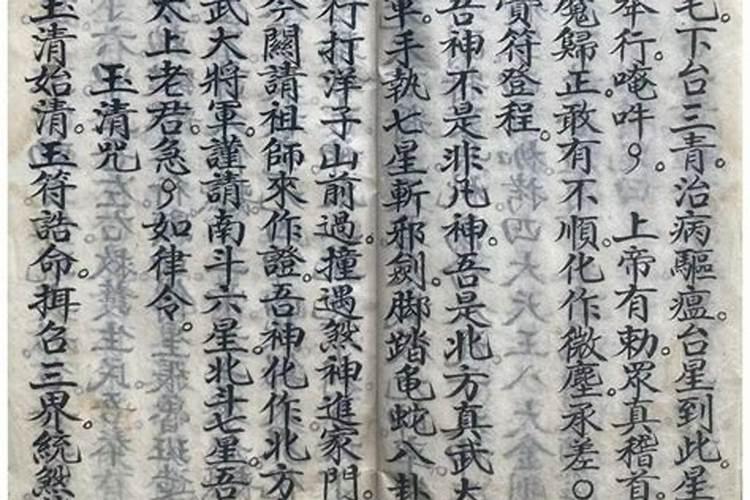 毛下台三青。治病驅瘟。台星到此。星
奉行。唵吽。 上帝有勅。眾真稽有
魔歸正。敢有不順。化作微塵。承差○
寶符登程。
吾神不是非凡神。吾是北方真武大
單手執七星斬邪劍。脚踏龟蛇八卦
行打洋子山前過。撞遇煞神進家門。
今闗請祖師來作證。吾神化作北方
武大將軍。謹請南斗六星。北斗七星。吾
太上老君急如律令。
玉清咒
玉清始清。玉符誥命。揖召三界。統煞